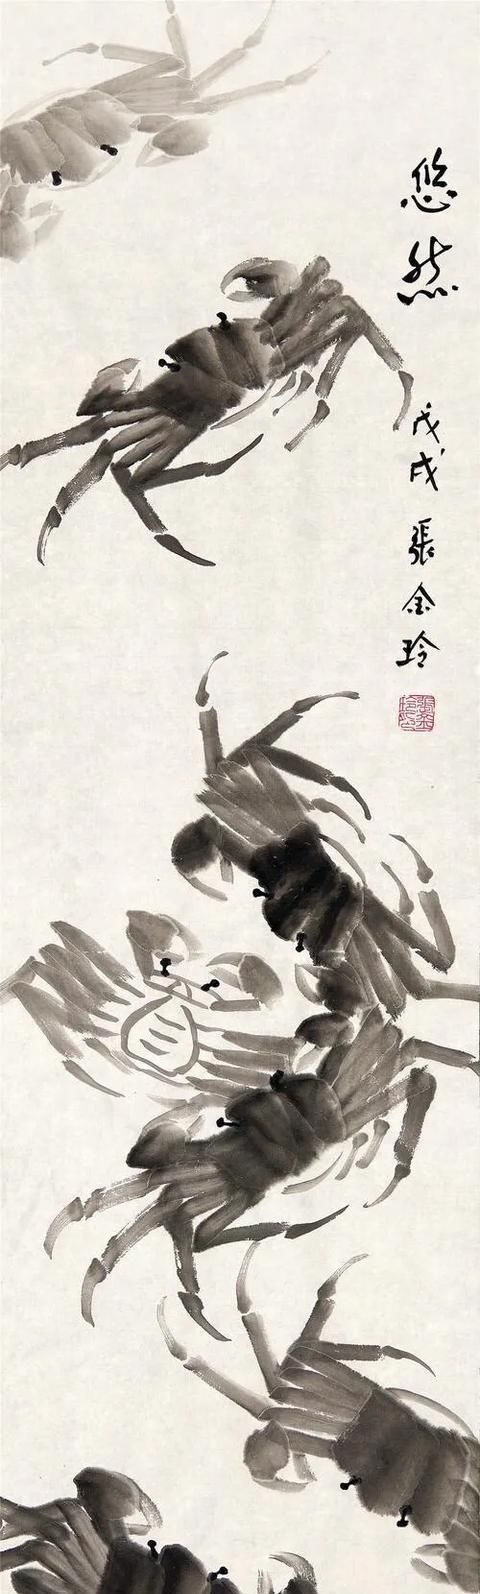 悠然
戊戌 張金玲